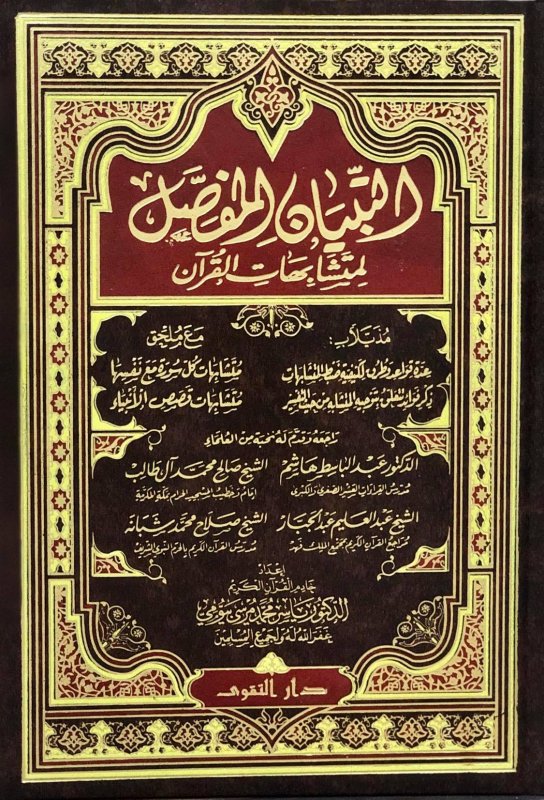 التبيان المفصل
لمتشابهات القرآن
مذيلاً ب:
عدة قواعد وطرق لكيفية ضبط المتشابهات
ذكر فوائد تتعلق بتوجيه المتشابه من حيث التفسير
مع ملحق
متشابهات كل سورة مع نفسها
متشابهات قصص الأنبياء
راجعه وقدم له نخبة من العلماء
الدكتور عبد الباسط هاشم
مدرس القراءات العشر الصغرى والكبرى
الشيخ صالح محمد آل طالب
إمام وخطيب المسجد الحرام بمكة المكرمة
الشيخ عبد العليم عبد الجبار
مراجع القرآن الكريم بمجمع الملك فهد
الشيخ صلاح محمد شبانة
مدرس القرآن الكريم بالحرم النبوي الشريف
إعداد
خادم القرآن الكريم
الدكتور ياسر محمد مرسي بيومي
غفر الله له ولجميع المسلمين
دار التقوى